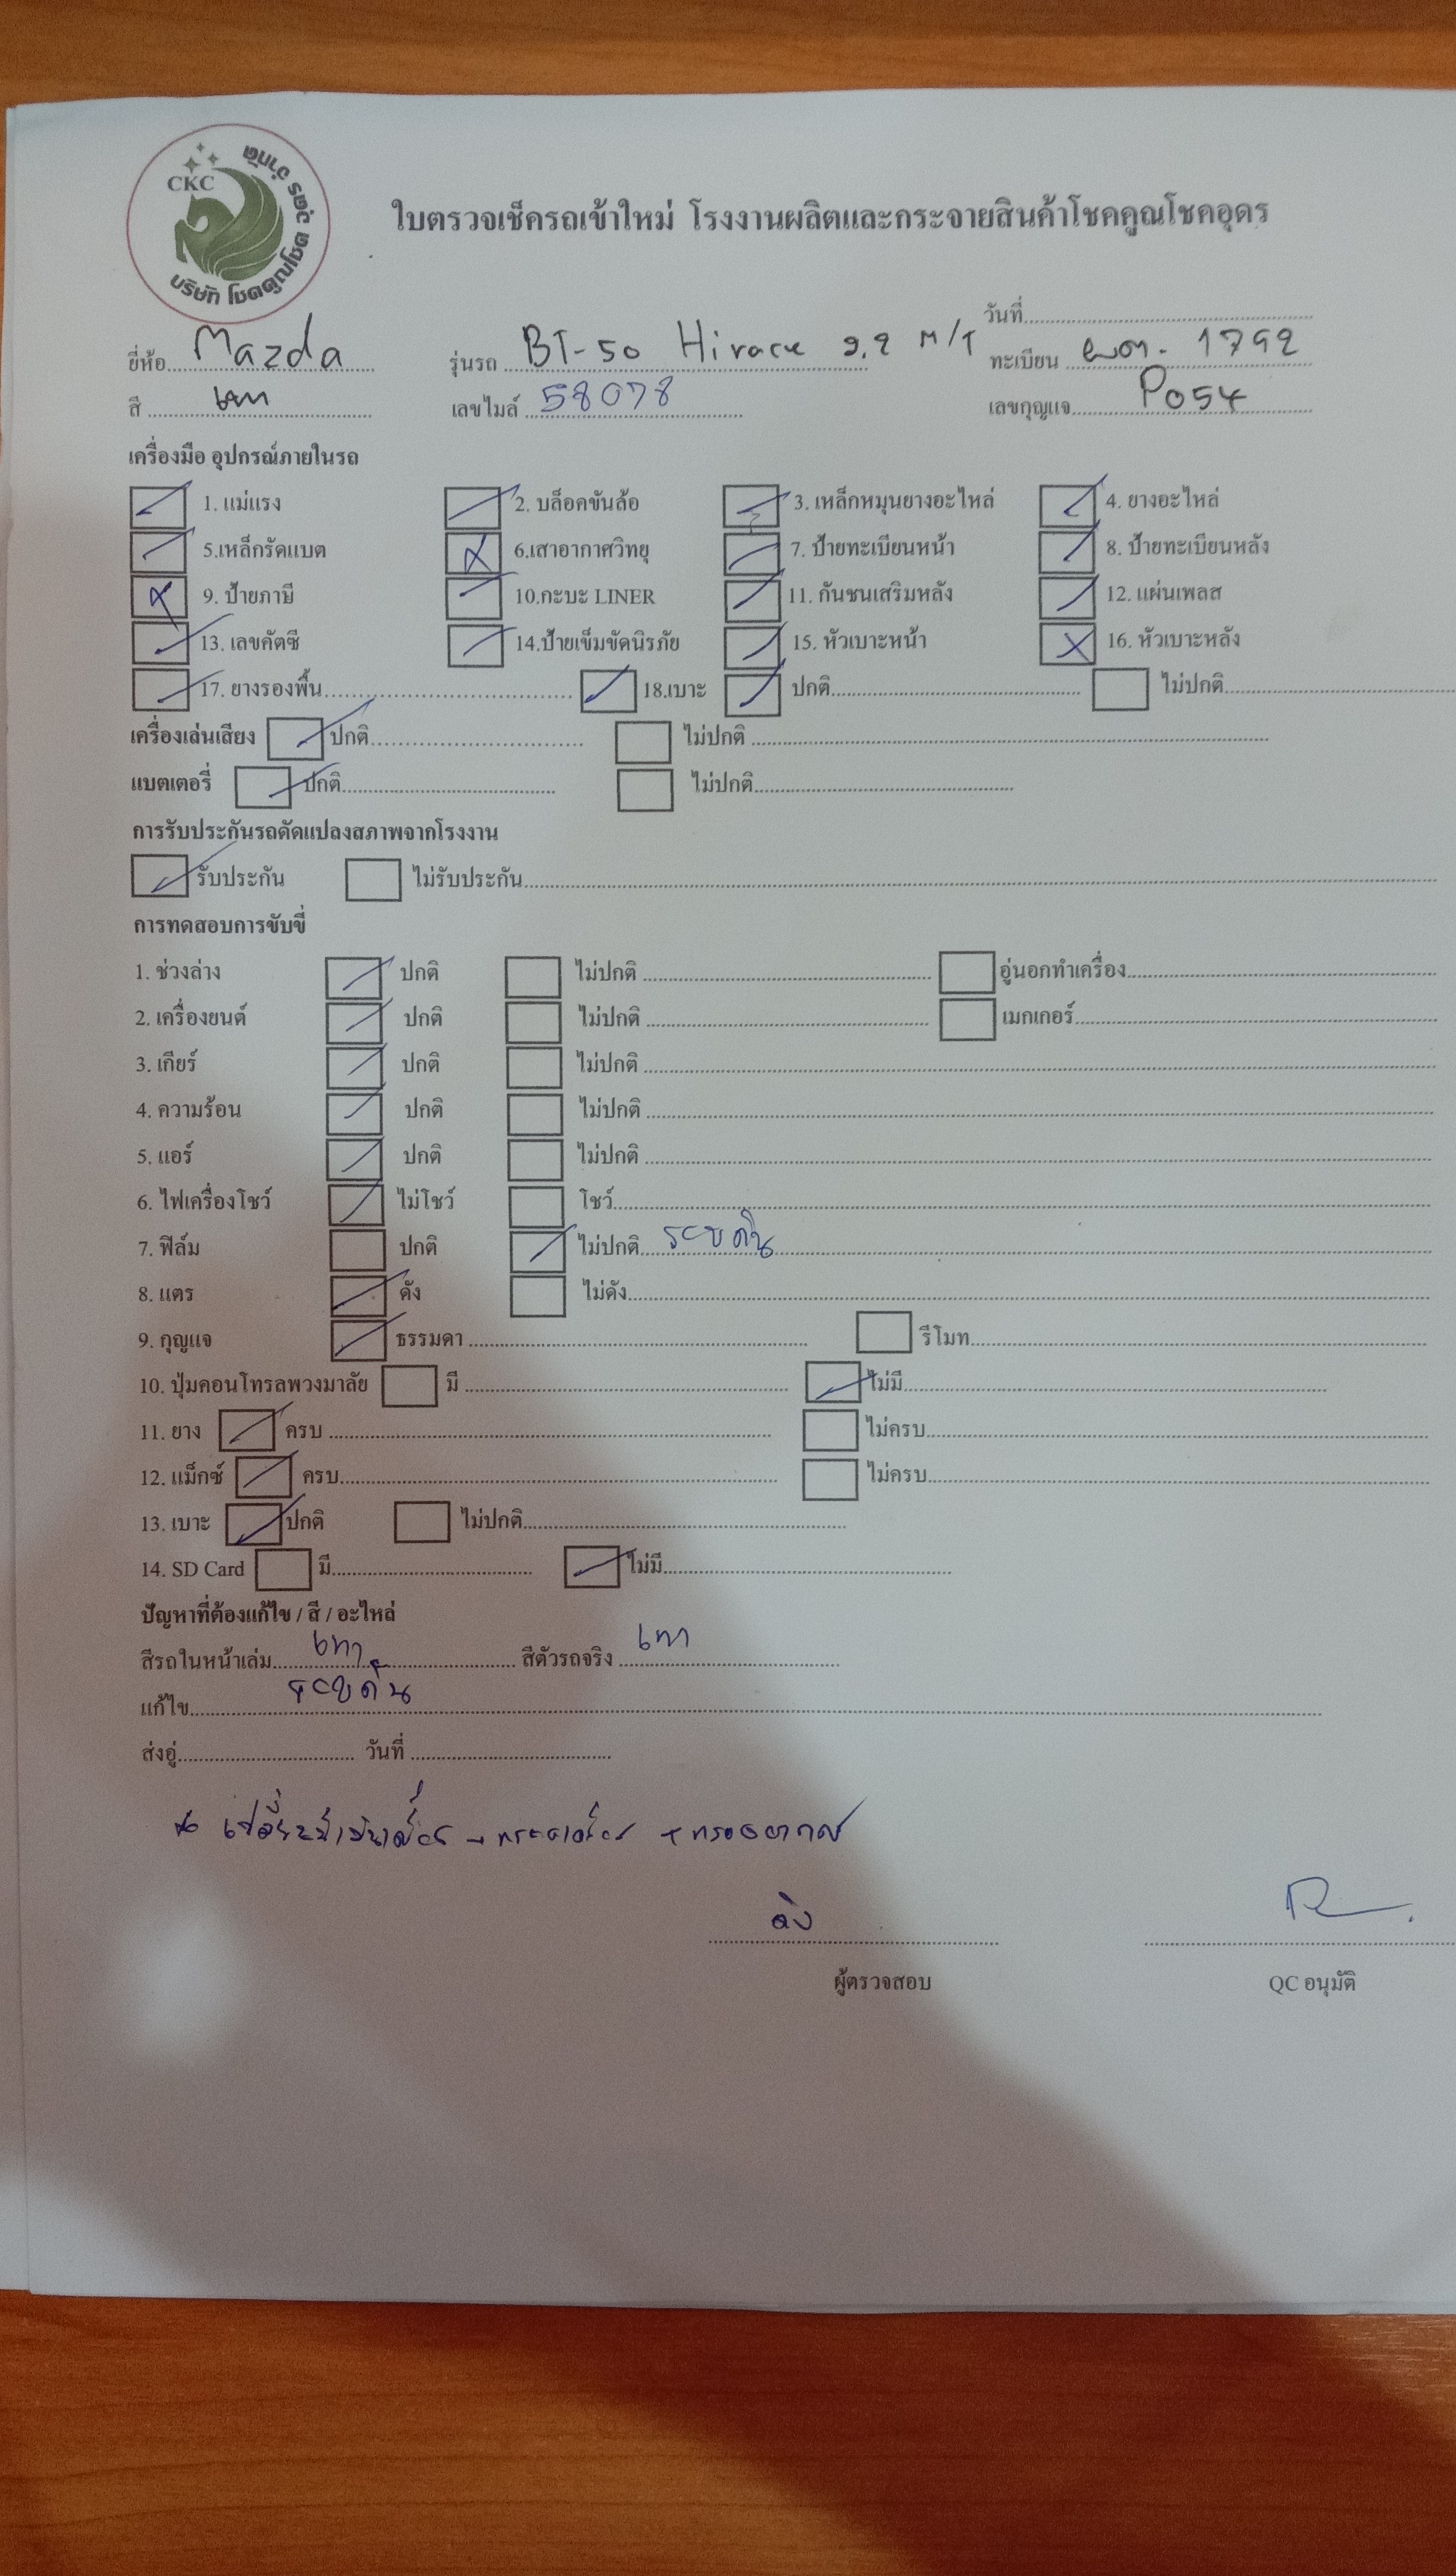 CKC
บริษัท โชคคูณโชค อุดร จำกัด
ใบตรวจเช็ครถเข้าใหม่ โรงงานผลิตและกระจายสินค้าโชคคูณโชคอุดร
วันที่
ยี่ห้อ Mazda รุ่นรถ BT-50 Hirace 2.2 M/T ทะเบียน 1792
สี เทา เลขไมล์ 58078 เลขกุญแจ P054
เครื่องมือ อุปกรณ์ภายในรถ
1. แม่แรง 2. บล็อคขันล้อ 3. เหล็กหมุนยางอะไหล่ 4. ยางอะไหล่
5.เหล็กรัดแบต 6.เสาอากาศวิทยุ 7. ป้ายทะเบียนหน้า 8. ป้ายทะเบียนหลัง
9. ป้ายภาษี 10.กะบะ LINER 11. กันชนเสริมหลัง 12. แผ่นเพลส
13. เลขคัตซี 14.ป้ายเข็มขัดนิรภัย 15. หัวเบาะหน้า 16. หัวเบาะหลัง
17. ยางรองพื้น 18.เบาะ ปกติ ไม่ปกติ
เครื่องเล่นเสียง ปกติ ไม่ปกติ
แบตเตอรี่ ปกติ ไม่ปกติ
การรับประกันรถดัดแปลงสภาพจากโรงงาน
รับประกัน ไม่รับประกัน
การทดสอบการขับขี่
1. ช่วงล่าง ปกติ ไม่ปกติ อู่นอกทำเครื่อง
2. เครื่องยนต์ ปกติ ไม่ปกติ เมกเกอร์
3. เกียร์ ปกติ ไม่ปกติ
4. ความร้อน ปกติ ไม่ปกติ
5. แอร์ ปกติ ไม่ปกติ
6. ไฟเครื่องโชว์ ไม่โชว์ โชว์
7. ฟิล์ม ปกติ ไม่ปกติ
8. แตร ดัง ไม่ดัง
9. กุญแจ ธรรมดา รีโมท
10. ปุ่มคอนโทรลพวงมาลัย มี ไม่มี
11. ยาง ครบ ไม่ครบ
12. แม็กซ์ ครบ ไม่ครบ
13. เบาะ ปกติ ไม่ปกติ
14. SD Card มี ไม่มี
ปัญหาที่ต้องแก้ไข / สี / อะไหล่
สีรถในหน้าเล่ม เทา สีตัวรถจริง เทา
แก้ไข
ส่งอู่ วันที่
ผู้ตรวจสอบ QC อนุมัติ